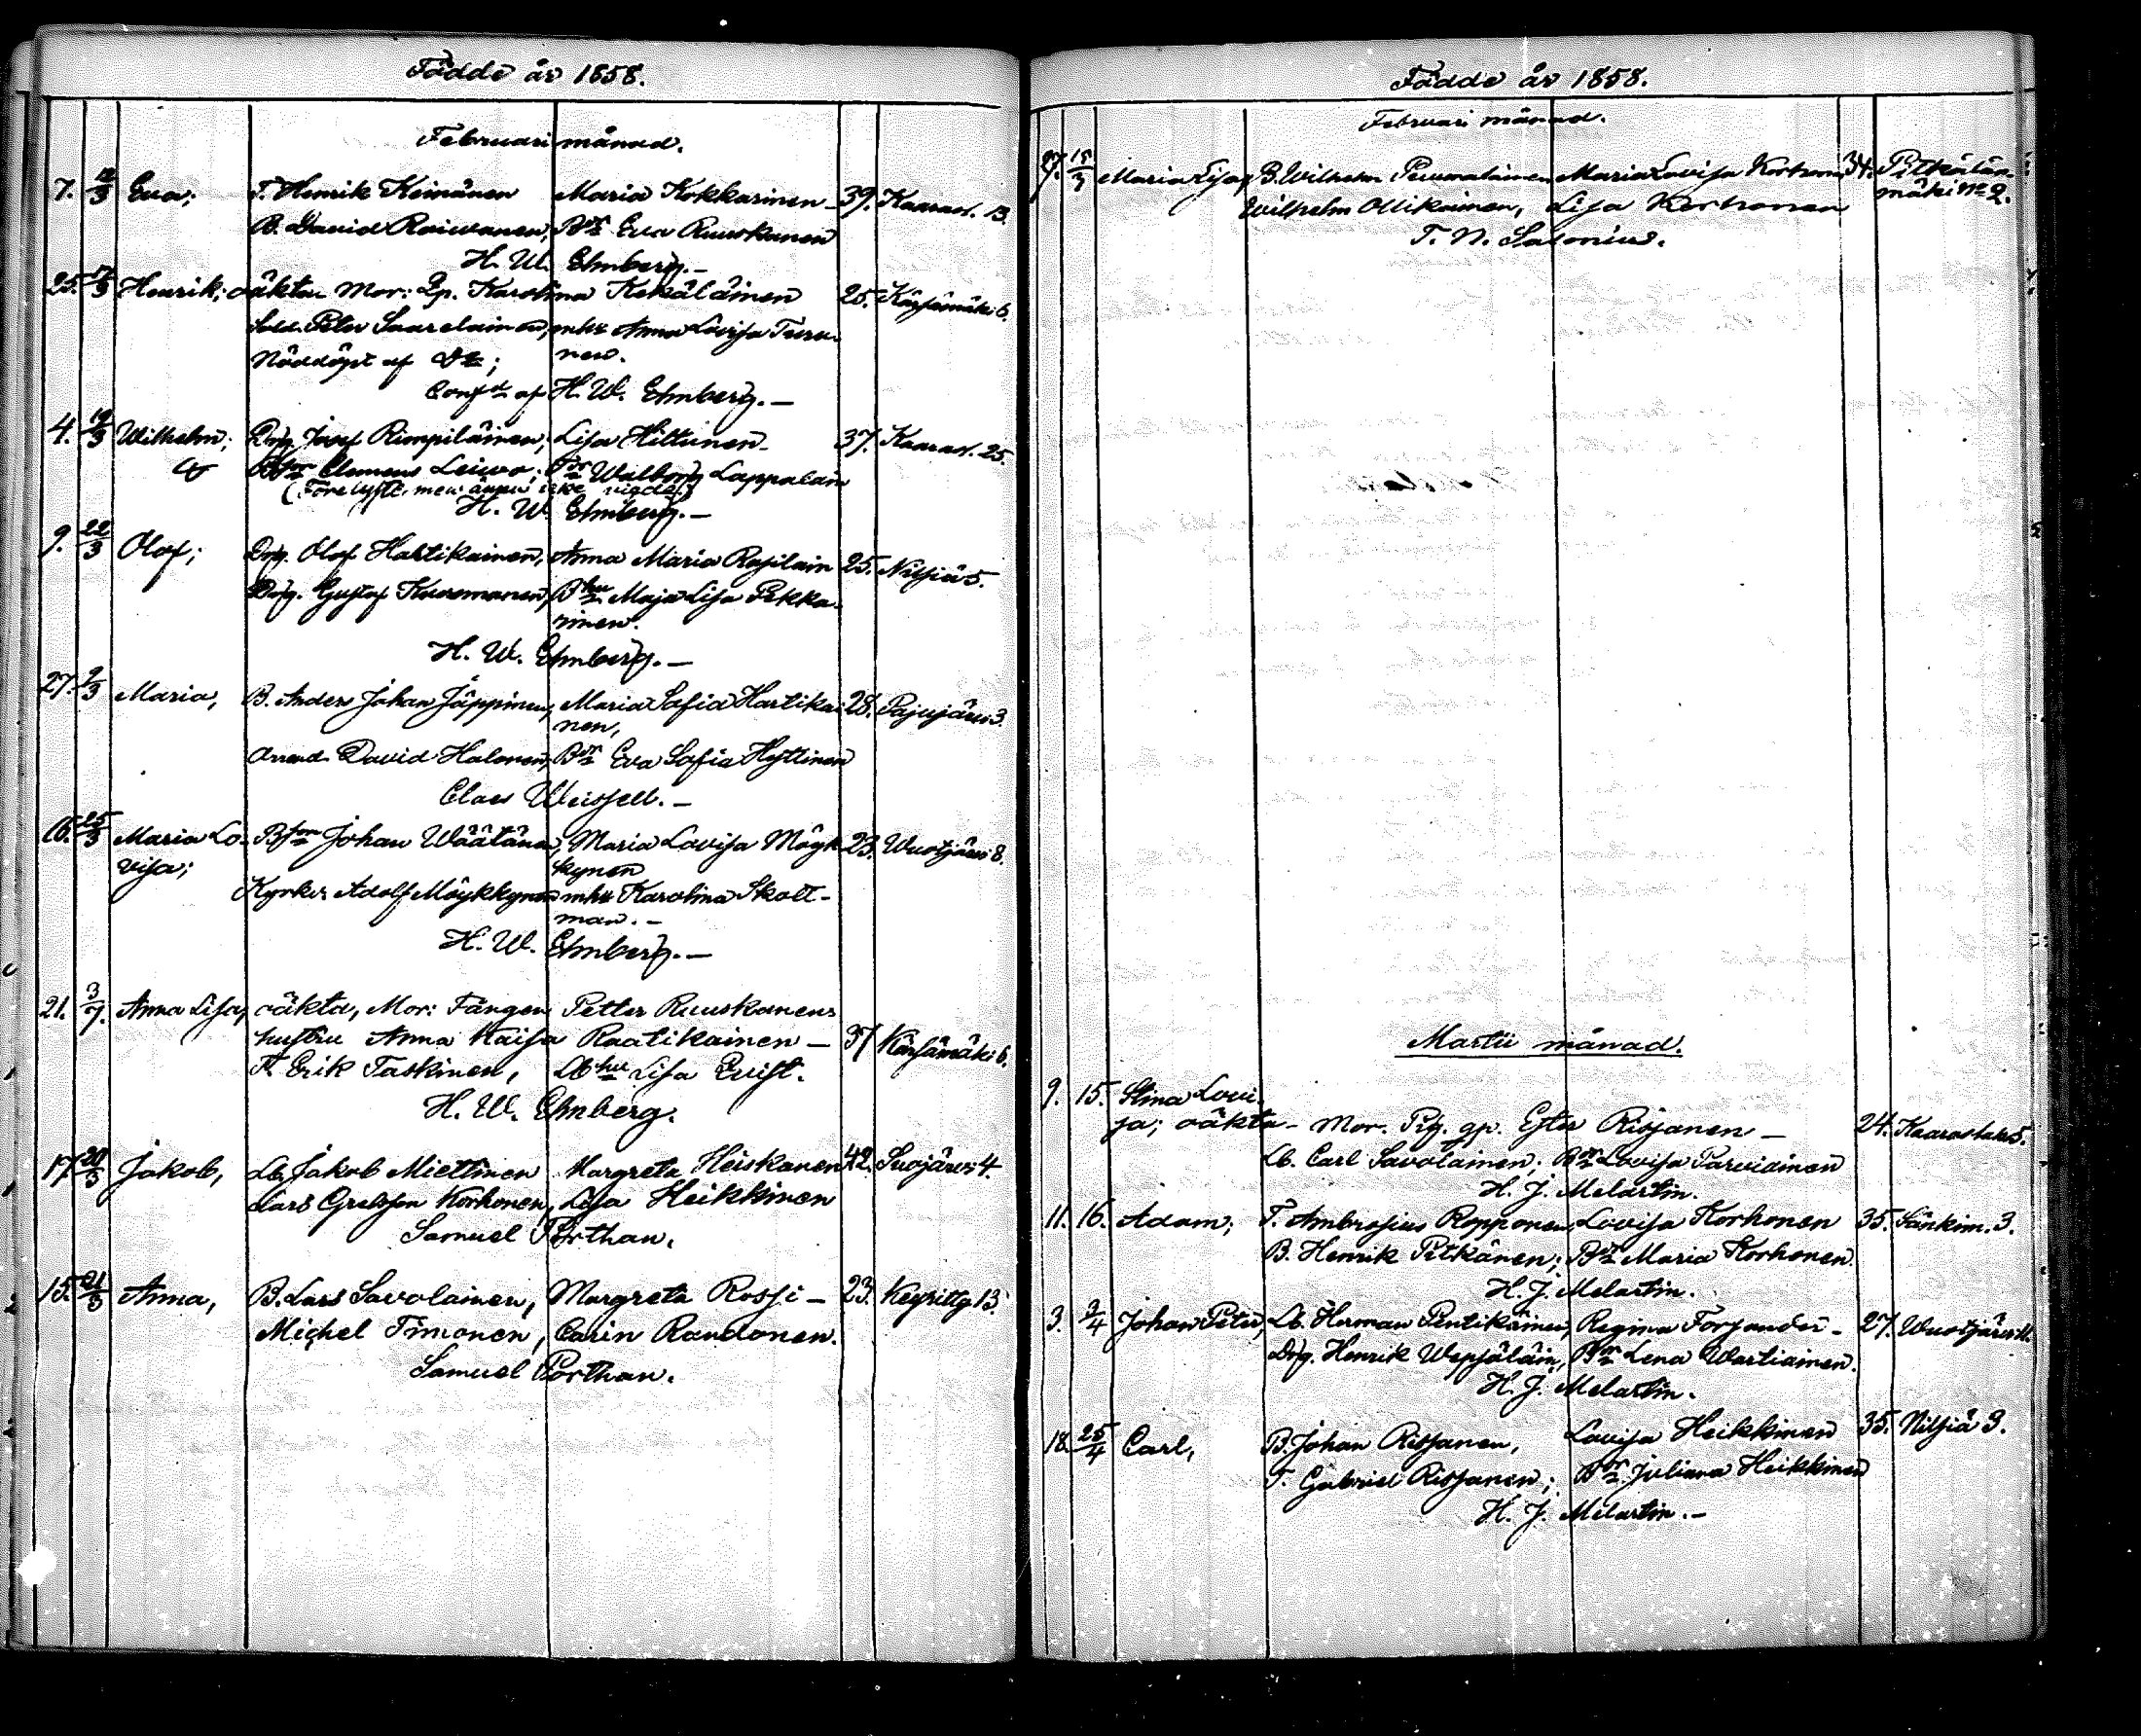 Födde år 1858.
Februari månad.
7. 12/3 Eva; T. Henrik Keinänen Maria Kokkarinen 39. Kaarasl. 13.
B. David Raivanen; Bdr Eva Ruuskanen
H. W. Ehnberg.—
25. 17/3 Henrik; oäkta Mor: Lp. Karolina Kekäläinen 25. Kärsämäki 6.
Sold. Peter Saarelainen, mhu Anna Lovisa Turu-
nen.
Nöddöpt af
Conf af H. W. Ehnberg.—
4. 19/3 Wilhelm; Drg. Josef Rimpiläinen, Lisa Hiltunen 37. Kaarasl. 25.
Bson Clemens Leivo; Walborg Lappalain
(Förelyste, men ännu icke vigde)
H. W. Ehnberg.—
9. 22/3 Olof; Drg. Olof Hartikainen, Anna Maria Rajilain 25. Nilsiä 5.
Drg. Gustaf Kuosmanen, Bhu Maja Lisa Pekka-
rinen.
H. W. Ehnberg.—
27. 9/3 Maria, B. Anders Johan Jäppinen, Maria Sofia Hartikai 28. Pajujärvi 3.
nen,
Arrend. David Halonen, Bdr Eva Sofia Hyttinen
Claes Weissell.—
16. 25/3 Maria Lo- Bson Johan Väätänen, Maria Lovisa Möyk 23. Wuotjärvi 8.
visa; kynen
Kyrkv. Adolf Möykkynen mhu Karolina Skott-
man.—
H. W. Ehnberg.—
21. 3/7. Anna Lisa, oäkta, Mor: Fången Petter Ruuskanens
hustru Anna Kaisa Raatikainen — 37 Kärsämäki 6.
T. Erik Taskinen, Lbhu Lisa Qvist.
H. W. Ehnberg.
17. 20/3 Jakob, Lb. Jakob Miettinen Margreta Heiskanen 42. Suojärvi 4.
Lars Gretsson Korhonen, Lisa Heikkinen
Samuel Porthan.
15. 21/3 Anna, B. Lars Savolainen, Margreta Rossi — 23. Keyritty 13
Michel Timonen, Carin Randonen.
Samuel Porthan.
Födde år 1858.
Februari månad.
27. 15/3 Maria Lisa, B. Wilhelm Maria Lovisa Korhonen 34. Pitkälän-
Wilhelm Ollikainen, Lisa Korhonen mäki No 2.
T. N. Salonius.
Martii månad.
9. 15. Stina Lovi-
sa; oäkta — Mor. Pig. gp. Ester Risjanen — 24. 5.
Lb. Carl Savolainen; Bdr Lovisa Parviainen
H. J. Melartin.
11. 16. Adam; T. Ambrosius Ropponen, Lovisa Korhonen 35. Sänkim. 3.
B. Henrik Pitkänen; Bdr Maria Korhonen.
H. J. Melartin.
3. 2/4 Johan Peter, Lb. Herman Pentikäinen, Regina Forsander — 27. Wuotjärvi 11.
Drg. Henrik Wepsäläin, Bdr Lena Wartiainen.
H. J. Melartin.
18. 25/4 Carl, B. Johan Rissanen, Lovisa Heikkinen 35. Nilsiä 3.
T. Gabriel Rissanen; Bdr Juliana Heikkinen
H. J. Melartin.—